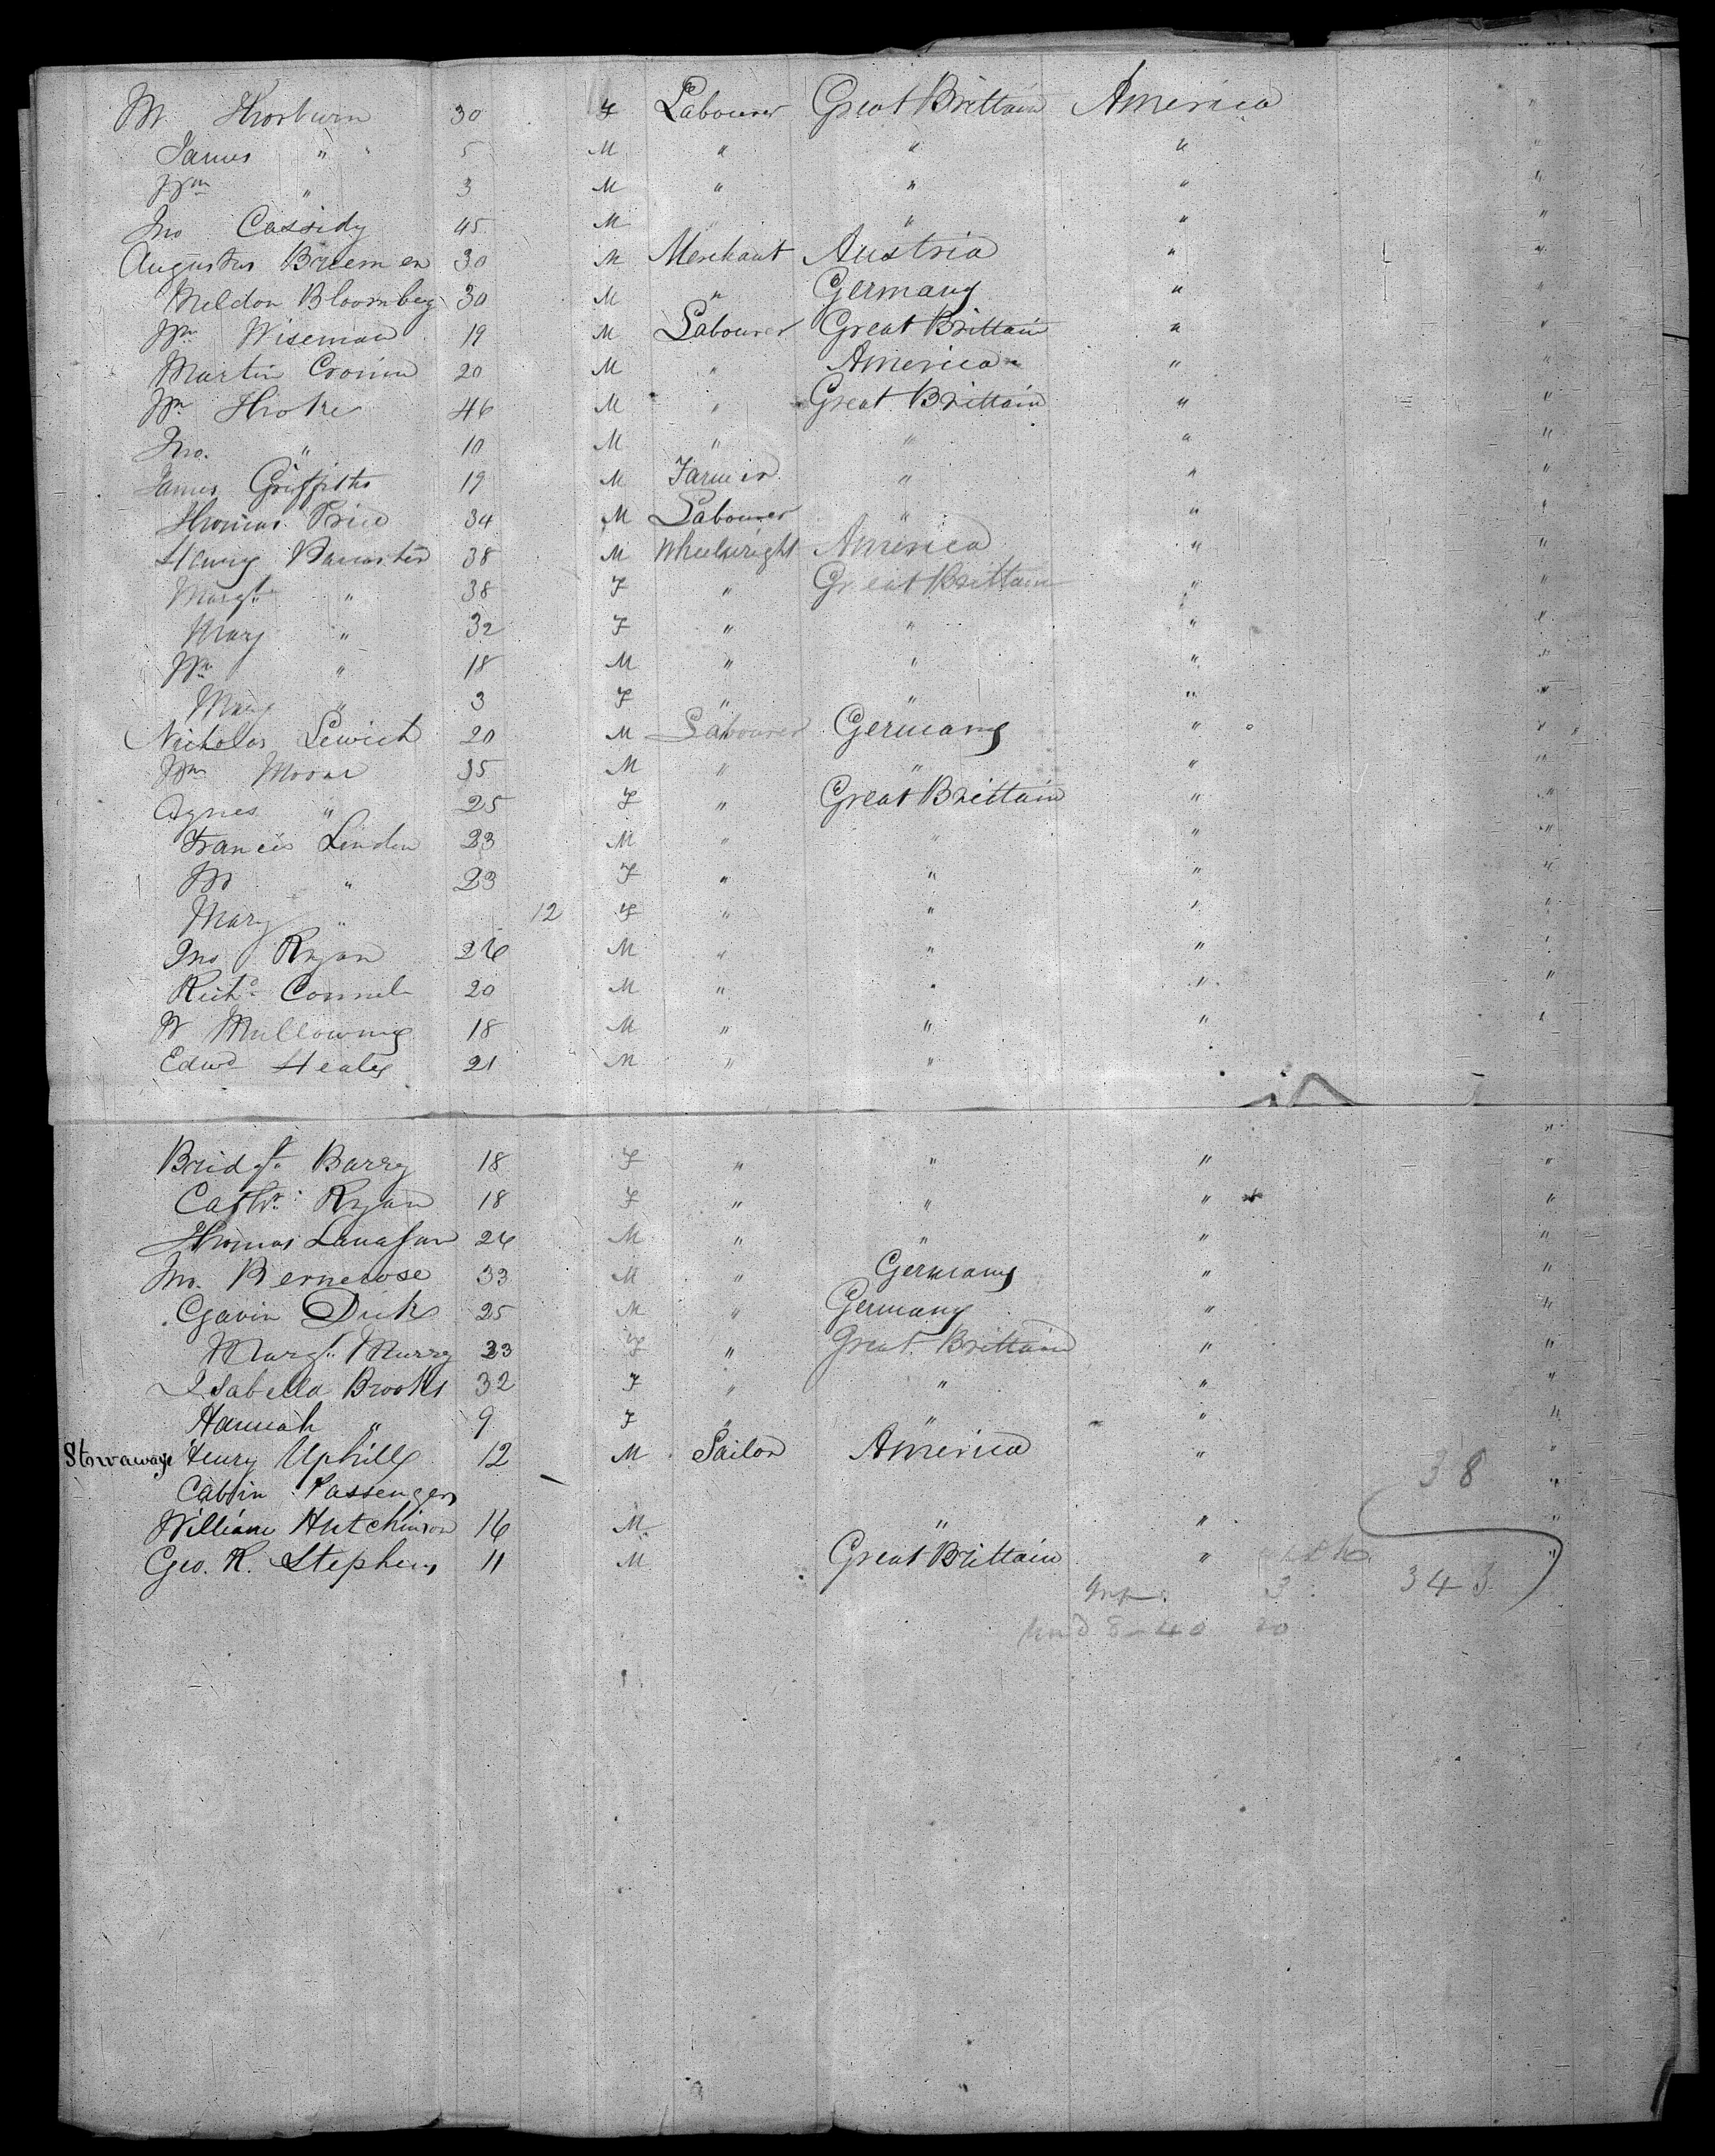 M Thorburn 30 F Labourer Great Brittain America "
James " 5 M " " " "
Wm " 3 M " " " "
Jno Cassidy 45 M " " " "
Augustus Breemen 30 M Merchant Austria " "
Meldon Bloomberg 30 M " Germany " "
Wm Wiseman 19 M Labourer Great Brittain " "
Martin Cronin 20 M " America " "
Wm Hooke 46 M " Great Brittain " "
Jno. " 10 M " " " "
James Griffiths 19 M Farmer " " "
Thomas Price 34 M Labourer " " "
Henry 38 M Wheelwright America " "
Margt " 38 F " Great Brittain " "
Mary " 32 F " " " "
Wm " 18 M " " " "
Mary " 3 F " " " "
Nicholas Lewich 20 M Labourer Germany " "
Wm Moore 35 M " " " "
Agnes " 25 F " Great Brittain " "
Francis Linden 23 M " " " "
M " 23 F " " " "
Mary " 12 F " " " "
Jno Ryan 26 M " " " "
Richd Connel 20 M " " " "
W Mullowney 18 M " " " "
Edwd Healey 21 M " "
"
Bridgt Barry 18 F " " " "
Cathr. Ryan 18 F " " " "
Thomas 26 M " " " "
Jno. Bernerose 33 M " Germany " "
Gavin Dick 25 M " Germany " "
Margt. Murry 33 F " Great Brittain " "
Isabella Brooks 32 F " " " "
Hannah " 9 F " " " "
Stowaway Henry Uphill 12 M Sailor America " "
Cabbin Passengers 38 "
William Hutchinson 16 M " " "
Geo. R. Stephens 11 M Great Brittain " "
3 343
und 8-40 20